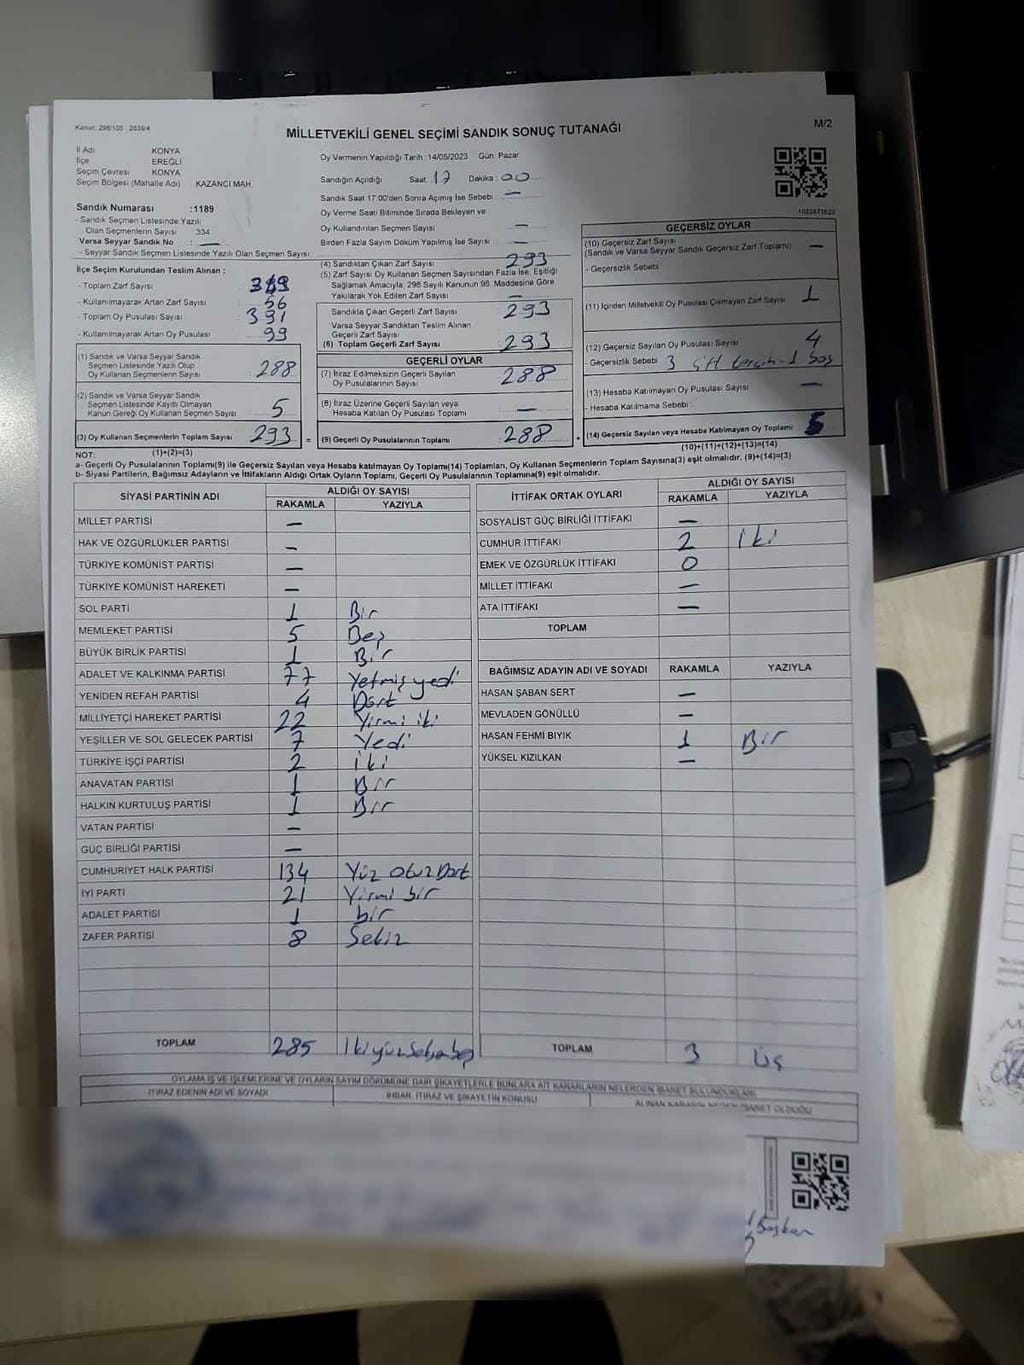 Kanun: 298/105 2839/4
MİLLETVEKİLİ GENEL SEÇİMİ SANDIK SONUÇ TUTANAĞI
M/2
İl Adı KONYA
İlçe EREĞLİ
Seçim Çevresi KONYA
Seçim Bölgesi (Mahalle Adı) KAZANCI MAH.
Sandık Numarası :1189
- Sandık Seçmen Listesinde Yazılı
Olan Seçmenlerin Sayısı 334
Varsa Seyyar Sandık No : —
- Seyyar Sandık Seçmen Listesinde Yazılı Olan Seçmen Sayısı
İlçe Seçim Kurulundan Teslim Alınan :
- Toplam Zarf Sayısı
- Kullanılmayarak Artan Zarf Sayısı 56
- Toplam Oy Pusulası Sayısı 391
- Kullanılmayarak Artan Oy Pusulası 99
(1) Sandık ve Varsa Seyyar Sandık
Seçmen Listesinde Yazılı Olup
Oy Kullanan Seçmenlerin Sayısı 288
(2) Sandık ve Varsa Seyyar Sandık
Seçmen Listesinde Kayıtlı Olmayan
Kanun Gereği Oy Kullanan Seçmen Sayısı 5
(3) Oy Kullanan Seçmenlerin Toplam Sayısı 293 =
Oy Vermenin Yapıldığı Tarih :14/05/2023 Gün :Pazar
Sandığın Açıldığı Saat : 17 Dakika : 00
Sandık Saat 17:00'den Sonra Açılmış İse Sebebi : —
Oy Verme Saati Bitiminde Sırada Bekleyen ve
Oy Kullandırılan Seçmen Sayısı —
Birden Fazla Sayım Döküm Yapılmış İse Sayısı —
(4) Sandıktan Çıkan Zarf Sayısı 293
(5) Zarf Sayısı Oy Kullanan Seçmen Sayısından Fazla İse, Eşitliği
Sağlamak Amacıyla, 298 Sayılı Kanunun 98. Maddesine Göre
Yakılarak Yok Edilen Zarf Sayısı —
Sandıkla Çıkan Geçerli Zarf Sayısı 293
Varsa Seyyar Sandıktan Teslim Alınan
Geçerli Zarf Sayısı
(6) Toplam Geçerli Zarf Sayısı 293
GEÇERLİ OYLAR
(7) İtiraz Edilmeksizin Geçerli Sayılan
Oy Pusulalarının Sayısı 288
(8) İtiraz Üzerine Geçerli Sayılan veya
Hesaba Katılan Oy Pusulası Toplamı —
(9) Geçerli Oy Pusulalarının Toplamı 288 +
1083871623
GEÇERSİZ OYLAR
(10) Geçersiz Zarf Sayısı —
(Sandık ve Varsa Seyyar Sandık Geçersiz Zarf Toplamı)
- Geçersizlik Sebebi
(11) İçinden Milletvekili Oy Pusulası Çıkmayan Zarf Sayısı 1
(12) Geçersiz Sayılan Oy Pusulası Sayısı 4
- Geçersizlik Sebebi : 3 çift tercih - 1 boş
(13) Hesaba Katılmayan Oy Pusulası Sayısı —
- Hesaba Katılmama Sebebi :
(14) Geçersiz Sayılan veya Hesaba Katılmayan Oy Toplamı 5
(10)+(11)+(12)+(13)=(14)
NOT: (1)+(2)=(3)
a- Geçerli Oy Pusulalarının Toplamı(9) ile Geçersiz Sayılan veya Hesaba katılmayan Oy Toplamı(14) Toplamları, Oy Kullanan Seçmenlerin Toplam Sayısına(3) eşit olmalıdır. (9)+(14)=(3)
b- Siyasi Partilerin, Bağımsız Adayların ve İttifakların Aldığı Ortak Oyların Toplamı, Geçerli Oy Pusulalarının Toplamına(9) eşit olmalıdır.
SİYASİ PARTİNİN ADI ALDIĞI OY SAYISI
RAKAMLA YAZIYLA
MİLLET PARTİSİ —
HAK VE ÖZGÜRLÜKLER PARTİSİ —
TÜRKİYE KOMÜNİST PARTİSİ —
TÜRKİYE KOMÜNİST HAREKETİ —
SOL PARTİ 1 Bir
MEMLEKET PARTİSİ 5 Beş
BÜYÜK BİRLİK PARTİSİ 1 Bir
ADALET VE KALKINMA PARTİSİ 77 Yetmiş yedi
YENİDEN REFAH PARTİSİ 4 Dört
MİLLİYETÇİ HAREKET PARTİSİ 22 Yirmi iki
YEŞİLLER VE SOL GELECEK PARTİSİ 7 Yedi
TÜRKİYE İŞÇİ PARTİSİ 2 İki
ANAVATAN PARTİSİ 1 Bir
HALKIN KURTULUŞ PARTİSİ 1 Bir
VATAN PARTİSİ —
GÜÇ BİRLİĞİ PARTİSİ —
CUMHURİYET HALK PARTİSİ 134 Yüz otuz Dört
İYİ PARTİ 21 Yirmi bir
ADALET PARTİSİ 1 bir
ZAFER PARTİSİ 8 Sekiz
TOPLAM 285 İkiyüzSeksenbeş
İTTİFAK ORTAK OYLARI ALDIĞI OY SAYISI
RAKAMLA YAZIYLA
SOSYALİST GÜÇ BİRLİĞİ İTTİFAKI —
CUMHUR İTTİFAKI 2 İki
EMEK VE ÖZGÜRLÜK İTTİFAKI 0
MİLLET İTTİFAKI —
ATA İTTİFAKI —
TOPLAM
BAĞIMSIZ ADAYIN ADI VE SOYADI RAKAMLA YAZIYLA
HASAN ŞABAN SERT —
MEVLADEN GÖNÜLLÜ —
HASAN FEHMİ BIYIK 1 Bir
YÜKSEL KIZILKAN —
TOPLAM 3 Üç
OYLAMA İŞ VE İŞLEMLERİNE VE OYLARIN SAYIM DÖKÜMÜNE DAİR ŞİKAYETLERLE BUNLARA AİT KARARLARIN NELERDEN İBARET BULUNDUKLARI
İTİRAZ EDENİN ADI VE SOYADI İHBAR, İTİRAZ VE ŞİKAYETİN KONUSU ALINAN KARARIN NEDEN İBARET OLDUĞU
Başkan